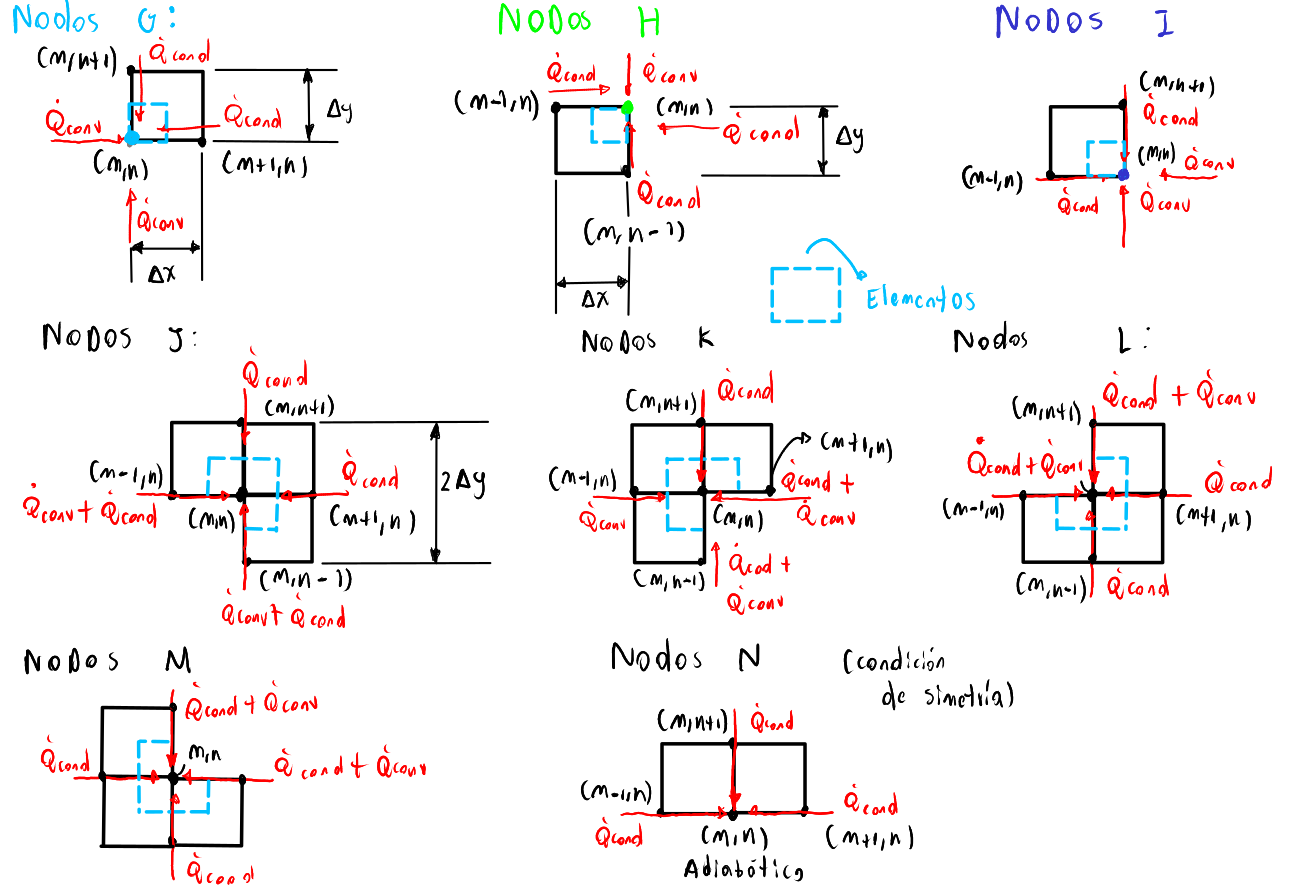 Nodos G:
(m,n+1)
Q̇cond
Q̇conv
Q̇cond
Δy
(m,n)
(m+1,n)
Q̇conv
Δx
NODOS H
Q̇cond
Q̇conv
(m-1,n)
(m,n)
Q̇cond
Δy
Q̇cond
(m,n-1)
Δx
NODOS I
(m,n+1)
Q̇cond
(m,n)
Q̇conv
(m-1,n)
Q̇cond
Q̇conv
Elementos
NODOS J:
Q̇cond
(m,n+1)
(m-1,n)
Q̇cond
2Δy
Q̇conv + Q̇cond
(m,n)
(m+1,n)
(m,n-1)
Q̇conv + Q̇cond
NODOS K
(m,n+1)
Q̇cond
(m+1,n)
(m-1,n)
Q̇cond +
Q̇conv
Q̇conv
(m,n)
(m,n-1)
Q̇cod +
Q̇conv
Nodos L:
Q̇cond + Q̇conv
(m,n+1)
Q̇cond + Q̇conv
Q̇cond
(m-1,n)
(m+1,n)
(m,n-1)
Q̇cond
NODOS M
Q̇cond + Q̇conv
m,n
Q̇cond
Q̇cond + Q̇conv
Q̇cond
Nodos N
(condición
de simetría)
(m,n+1)
Q̇cond
(m-1,n)
Q̇cond
Q̇cond
(m,n)
(m+1,n)
Adiabático